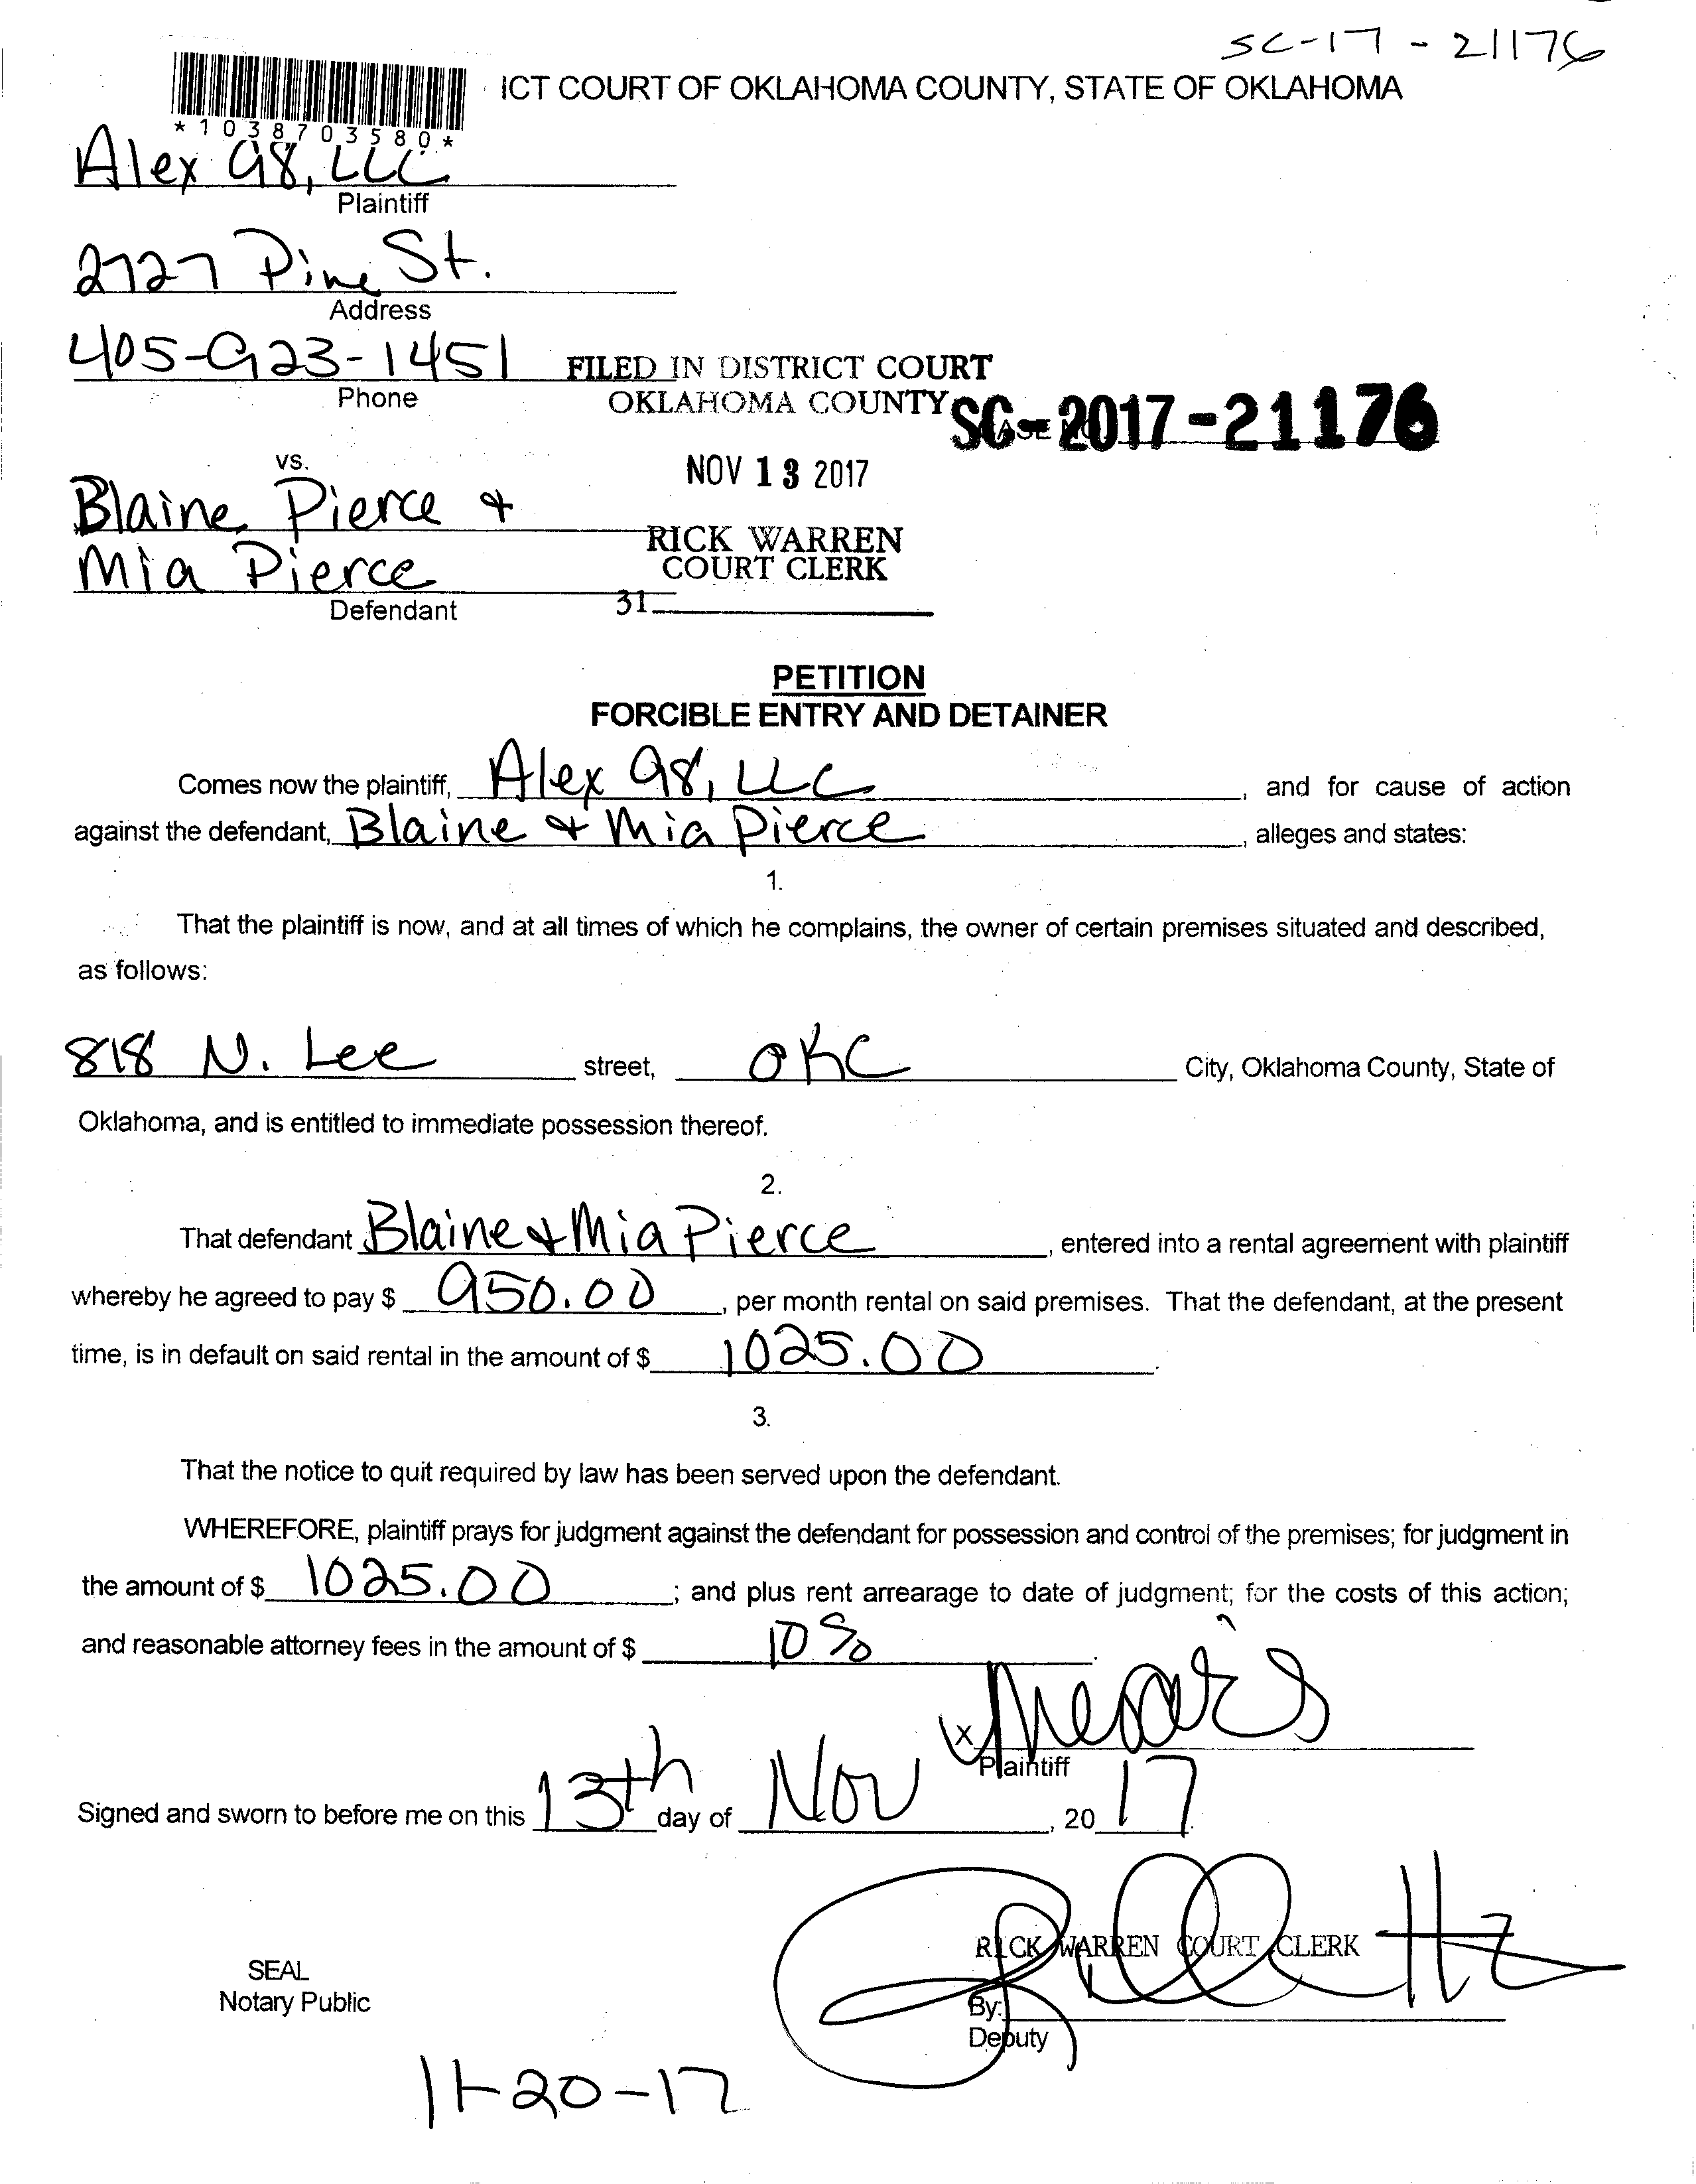 SC-17-21176
ICT COURT OF OKLAHOMA COUNTY, STATE OF OKLAHOMA
*1038703580*
Alex 98, LLC
Plaintiff
2727 Pine St.
Address
405-923-1451
Phone
FILED IN DISTRICT COURT
OKLAHOMA COUNTY
SC-2017-21176
NOV 13 2017
vs.
Blaine Pierce &
Mia Pierce
Defendant
RICK WARREN
COURT CLERK
31
PETITION
FORCIBLE ENTRY AND DETAINER
Comes now the plaintiff, Alex 98, LLC, and for cause of action
against the defendant, Blaine & Mia Pierce, alleges and states:
1.
That the plaintiff is now, and at all times of which he complains, the owner of certain premises situated and described,
as follows:
818 N. Lee street, OKC City, Oklahoma County, State of
Oklahoma, and is entitled to immediate possession thereof.
2.
That defendant Blaine & Mia Pierce, entered into a rental agreement with plaintiff
whereby he agreed to pay $ 950.00, per month rental on said premises. That the defendant, at the present
time, is in default on said rental in the amount of $ 1025.00.
3.
That the notice to quit required by law has been served upon the defendant.
WHEREFORE, plaintiff prays for judgment against the defendant for possession and control of the premises; for judgment in
the amount of $ 1025.00; and plus rent arrearage to date of judgment; for the costs of this action;
and reasonable attorney fees in the amount of $ 10%.
X
Plaintiff
Signed and sworn to before me on this 13th day of Nov, 2017.
RICK WARREN COURT CLERK
SEAL
Notary Public
By:
Deputy
11-20-17